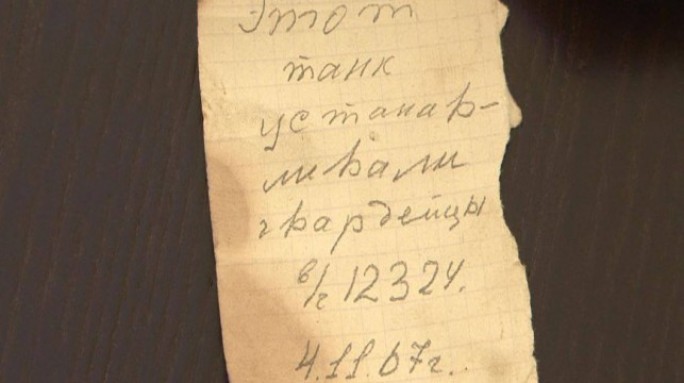 Этот
танк
устанав-
ливали
гвардейцы
в/ч 12324.
4.11.67г.